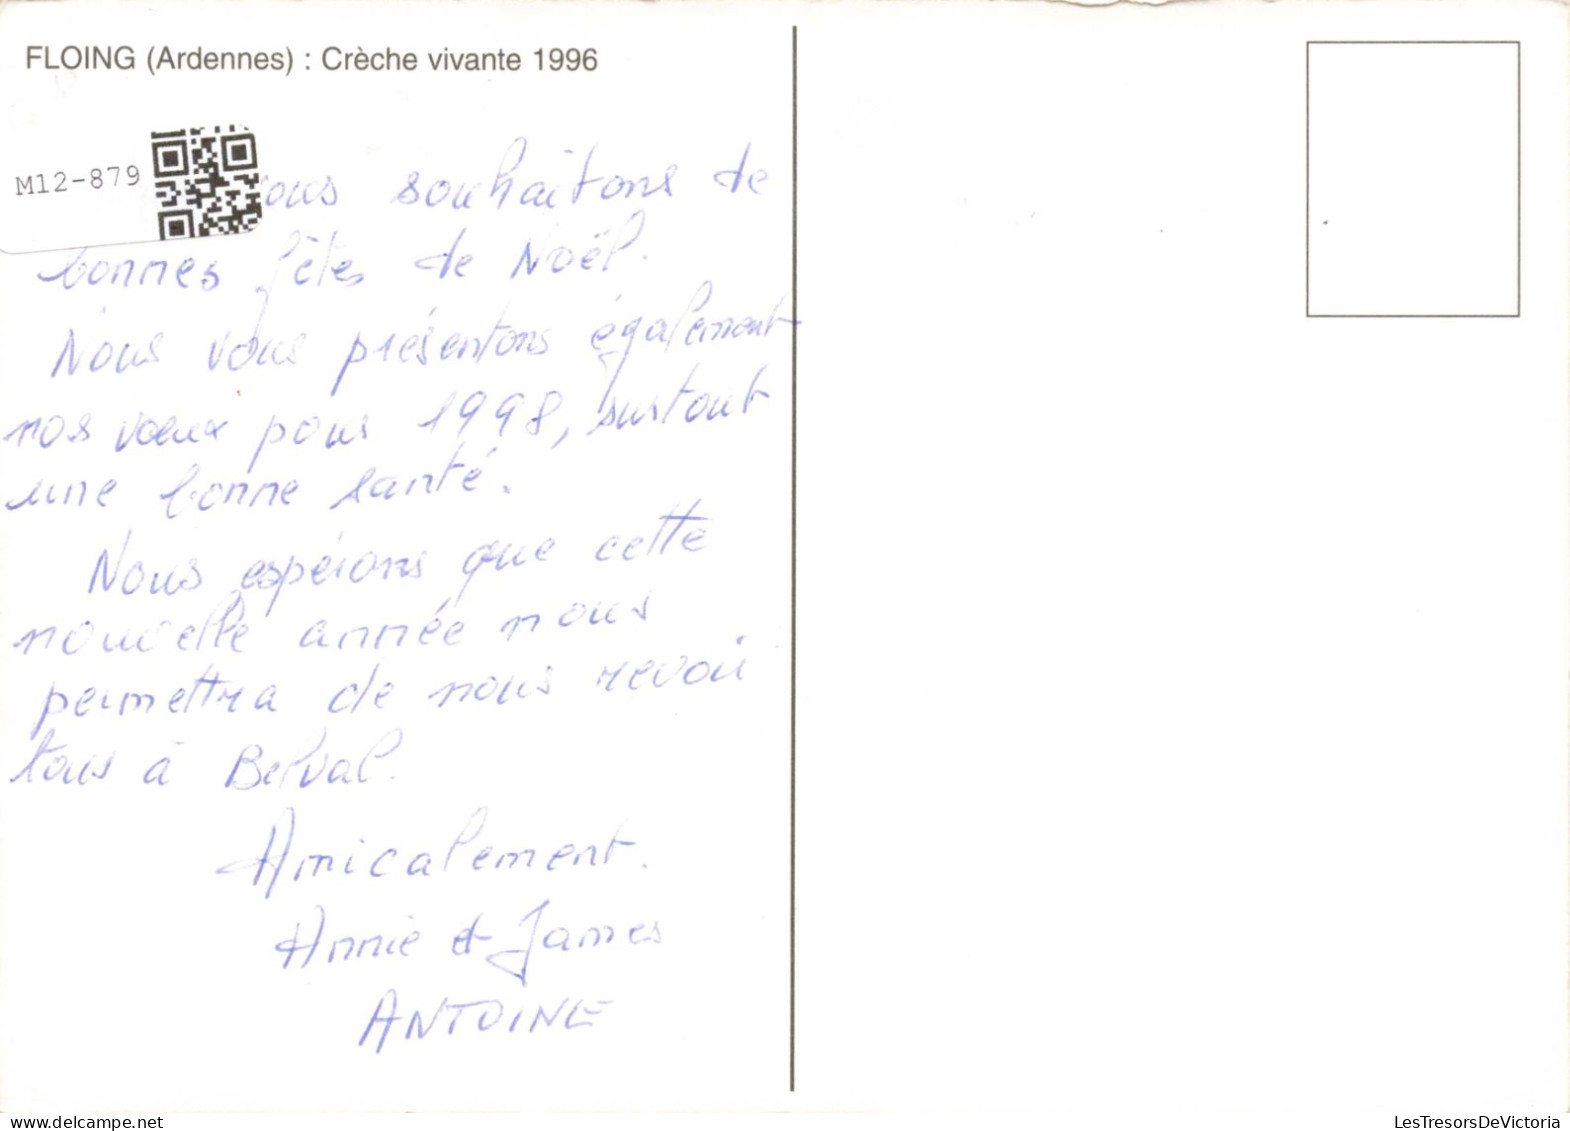 FLOING (Ardennes) : Crèche vivante 1996
M12-879
ous souhaitons de
bonnes fêtes de Noël.
Nous vous présentons également
nos voeux pour 1998, surtout
une bonne santé.
Nous espérons que cette
nouvelle année nous
permettra de nous revoir
tous à Belval.
Amicalement.
Annie et James
ANTOINE
LesTresorsDeVictoria